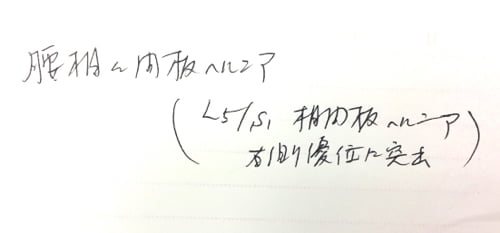 腰椎椎間板ヘルニア
(L5/S1 椎間板ヘルニア
右側優位に突出)